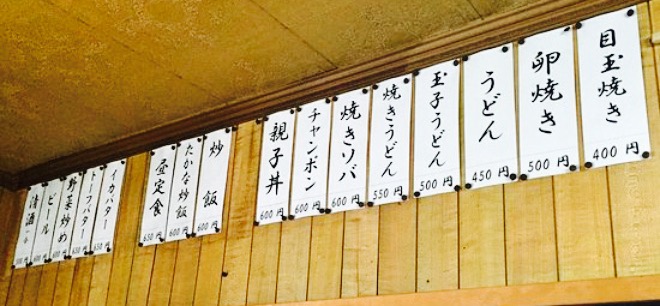 目玉焼き 400円
卵焼き 500円
うどん 450円
玉子うどん 500円
焼きうどん 550円
焼きソバ 600円
チャンポン 600円
親子丼 600円
炒飯 600円
たかな炒飯 600円
昼定食 650円
イカバター 650円
トーフバター
野菜炒め
ビール
清酒